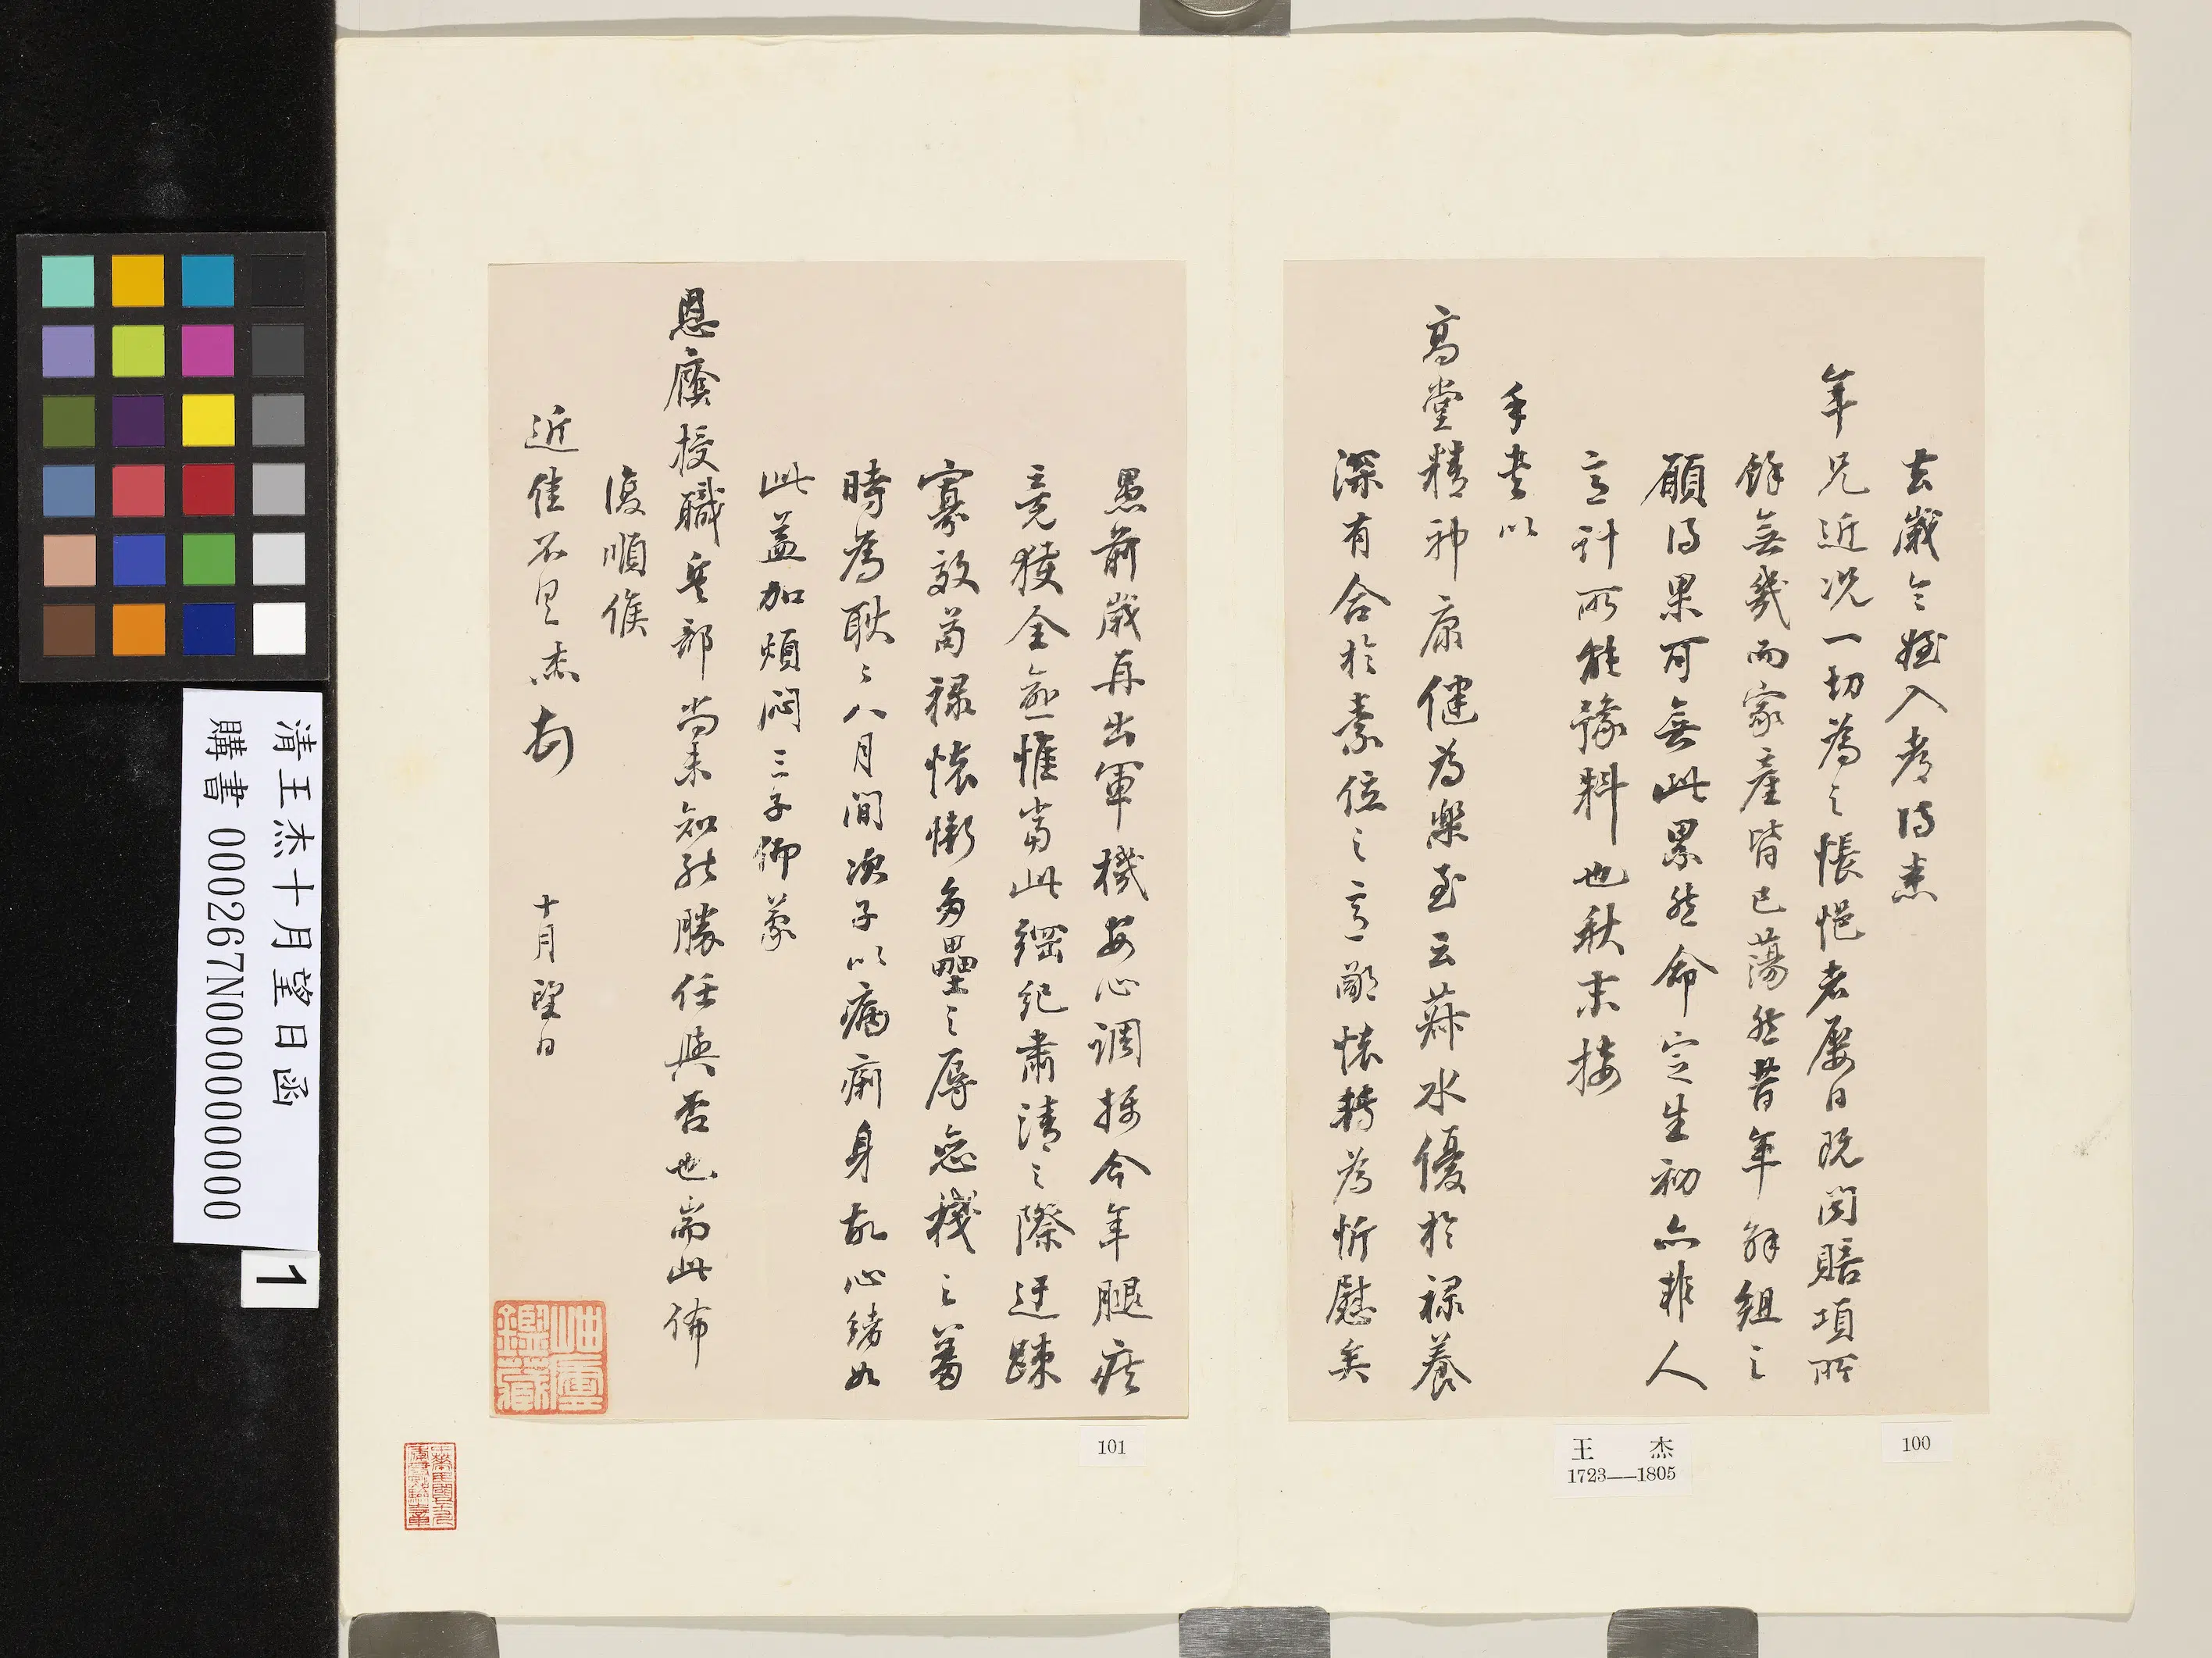 去歲令姪入考得悉
年兄近況一切為之悵悒者屢日既閱賠項所
餘無幾而家產皆已蕩然昔年解組之
願得果可無此累然命定生初亦非人
言計所能豫料也秋末接
手書以
高堂精神康健為樂至云菽水優於祿養
深有合於素位之言鄙懷轉為忻慰矣
愚前歲再出軍機安心調攝今年腿疾
竟獲全愈惟當此綱紀肅清之際迂疎
寡效啇祿懷慚多壘之辱惡機之蓄
時為耿々八月間次子以癇痢身故心緒如
此益加煩悶三子仰蒙
恩廕授職兵部尚未知能勝任與否也耑此佈
復順候
近佳不具杰頓
十月望日
鑑藏
100
101
王 杰
1723——1805
清王杰十月望日函
購書 000267N000000000
1